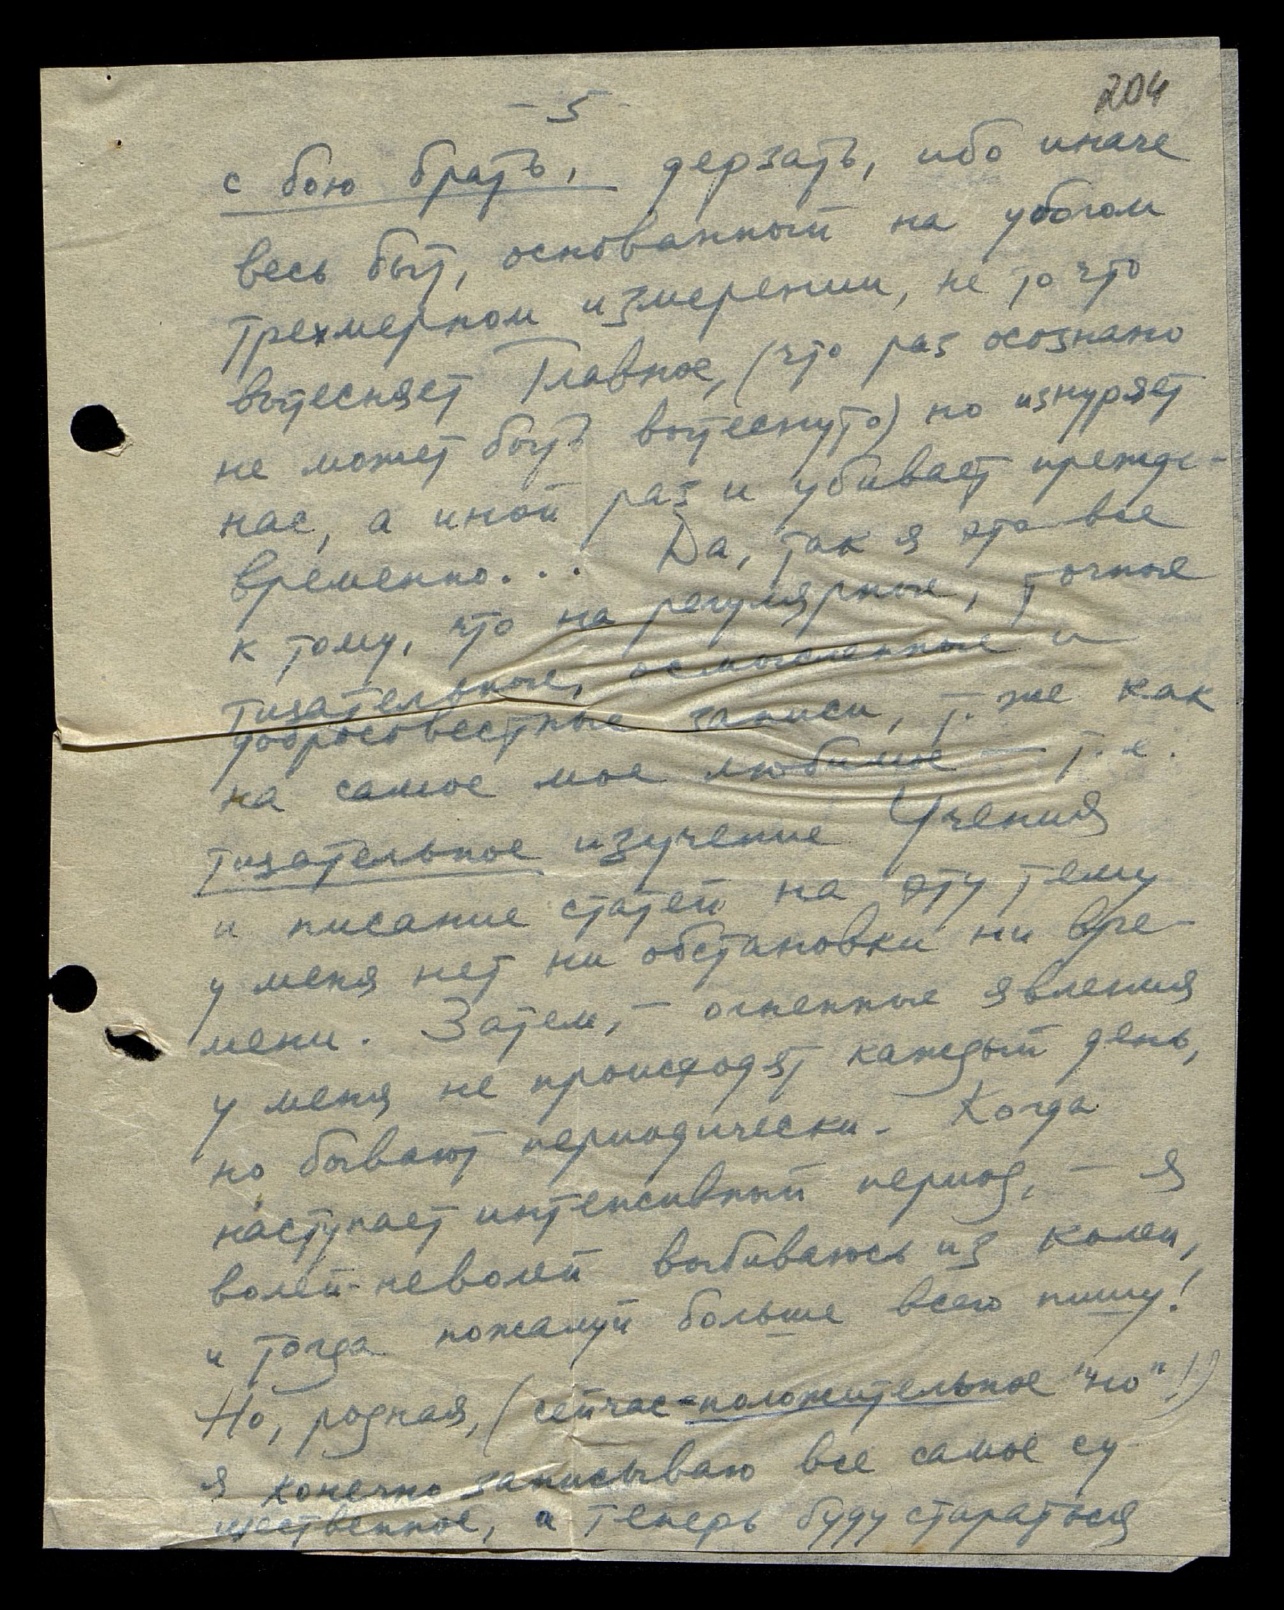 204
- 5 -
с бою брать, дерзать, ибо иначе
весь быт, основанный на убогом
трехмерном измерении, не то что
вытесняет Главное, (что раз осознано
не может быть вытеснуто) но изнуряет
нас, а иной раз и убивает прежде-
временно... Да, так я это все
к тому, что на регулярные, точные
тщательные, осмысленные и
добросовестные записи, т. же как
на самое мое любимое — т.е.
тщательное изучение Учения
и писание статей на эту тему
у меня нет ни обстановки ни вре-
мени. Затем, — огненные явления
у меня не происходят каждый день,
но бывают периодически. Когда
наступает интенсивный период, — я
волей-неволей выбиваюсь из колеи,
и тогда пожалуй больше всего пишу!
Но, родная, (сейчас-положительное "но"!)
я конечно записываю все самое су
щественное, а теперь буду стараться